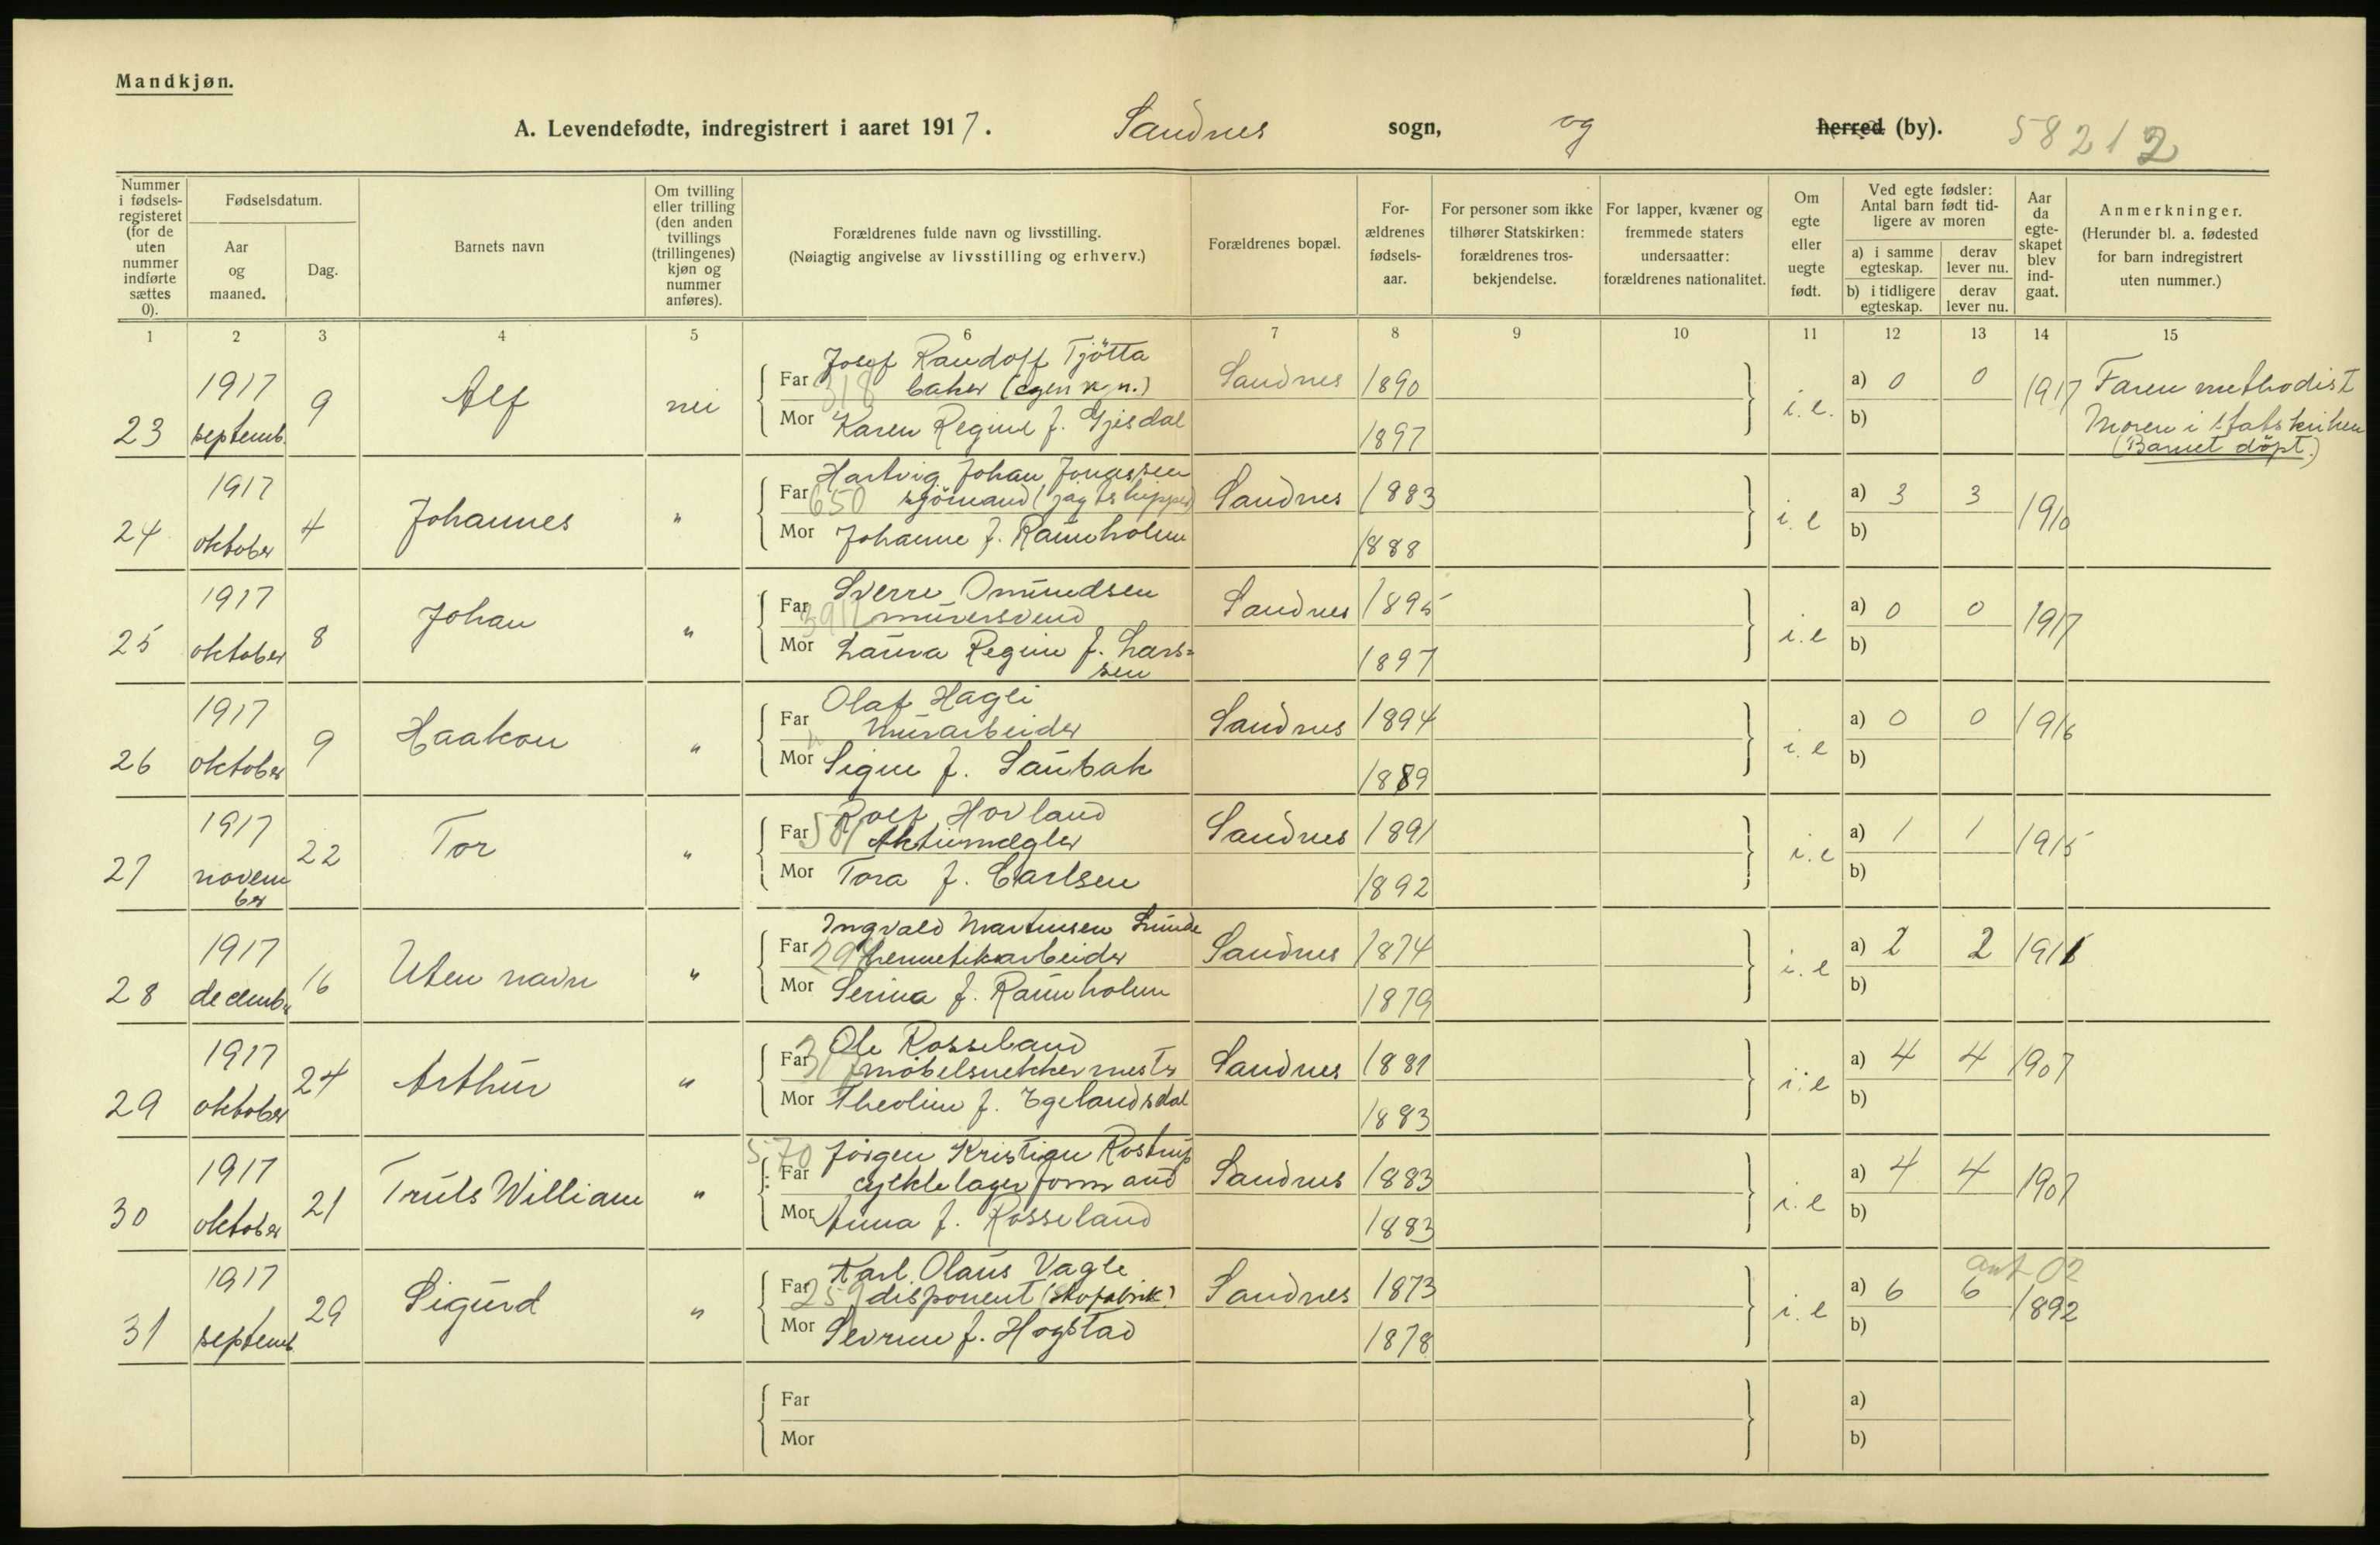 Mandkjøn.
A. Levendefødte, indregistrert i aaret 1917. Sandnes sogn, og herred (by). 58212
Nummer i fødselsregisteret (for de uten nummer indførte sættes 0).
Fødselsdatum.
Aar og maaned.
Dag.
Barnets navn
Om tvilling eller trilling (den anden tvillings (trillingenes) kjøn og nummer anføres).
Forældrenes fulde navn og livsstilling.
(Nøiagtig angivelse av livsstilling og erhverv.)
Forældrenes bopæl.
Forældrenes fødselsaar.
For personer som ikke tilhører Statskirken: forældrenes trosbekjendelse.
For lapper, kvæner og fremmede staters undersaatter: forældrenes nationalitet.
Om egte eller uegte født.
Ved egte fødsler: Antal barn født tidligere av moren
a) i samme egteskap. derav lever nu.
b) i tidligere egteskap. derav lever nu.
Aar da egteskapet blev indgaat.
Anmerkninger.
(Herunder bl. a. fødested for barn indregistrert uten nummer.)
1 2 3 4 5 6 7 8 9 10 11 12 13 14 15
23 1917 septemb. 9 Alf nei
Far Josef Randolf Tjötta
318 baker (egen r, n.) Sandnes 1890
Mor Karen Regine f. Gjesdal 1897
i. e. a) 0 0 1917
b)
Faren methodist
Moren i statskirken
(Barnet döpt.)
24 1917 oktober 4 Johannes "
Far Hartvig Johan Jonassen
650 sjömand (jagtskipper) Sandnes 1883
Mor Johanne f. Raunholm 1888
i. e a) 3 3 1910
b)
25 1917 oktober 8 Johan "
Far Sverre Omundsen
391 murersvend Sandnes 1895
Mor Laura Regine f. Larssen 1897
i. e a) 0 0 1917
b)
26 1917 oktober 9 Haakon "
Far Olaf Hagli
Murarbeider Sandnes 1894
Mor Signe f. Saubak 1889
i. e a) 0 0 1916
b)
27 1917 november 22 Tor "
Far Rolf Hovland
501 Aktiemægler Sandnes 1891
Mor Tora f. Carlsen 1892
i. e a) 1 1 1915
b)
28 1917 decembr 16 Uten navn "
Far Ingvald Martinsen Lunde
29 hermetikarbeider Sandnes 1874
Mor Serina f. Raunholm 1879
i. e a) 2 2
b)
29 1917 oktober 24 Arthur "
Far Ole Rosseland
317 möbelsnekkermestr Sandnes 1881
Mor Theoline f. Egelandsdal 1883
i. e a) 4 4 1907
b)
30 1917 oktober 21 Truls William "
570 Far Jörgen Kristian Rostrup
cyklelagerformand Sandnes 1883
Mor Anna f. Rosseland 1883
i. e a) 4 4 1907
b)
31 1917 septemb 29 Sigurd "
Far Karl Olaus Vagle
259 disponent (skofabrik) Sandnes 1873
Mor Sevrine f. Hogstad 1878
i. e a) 6 6 ant. 02 1892
b)
Far
Mor
a)
b)